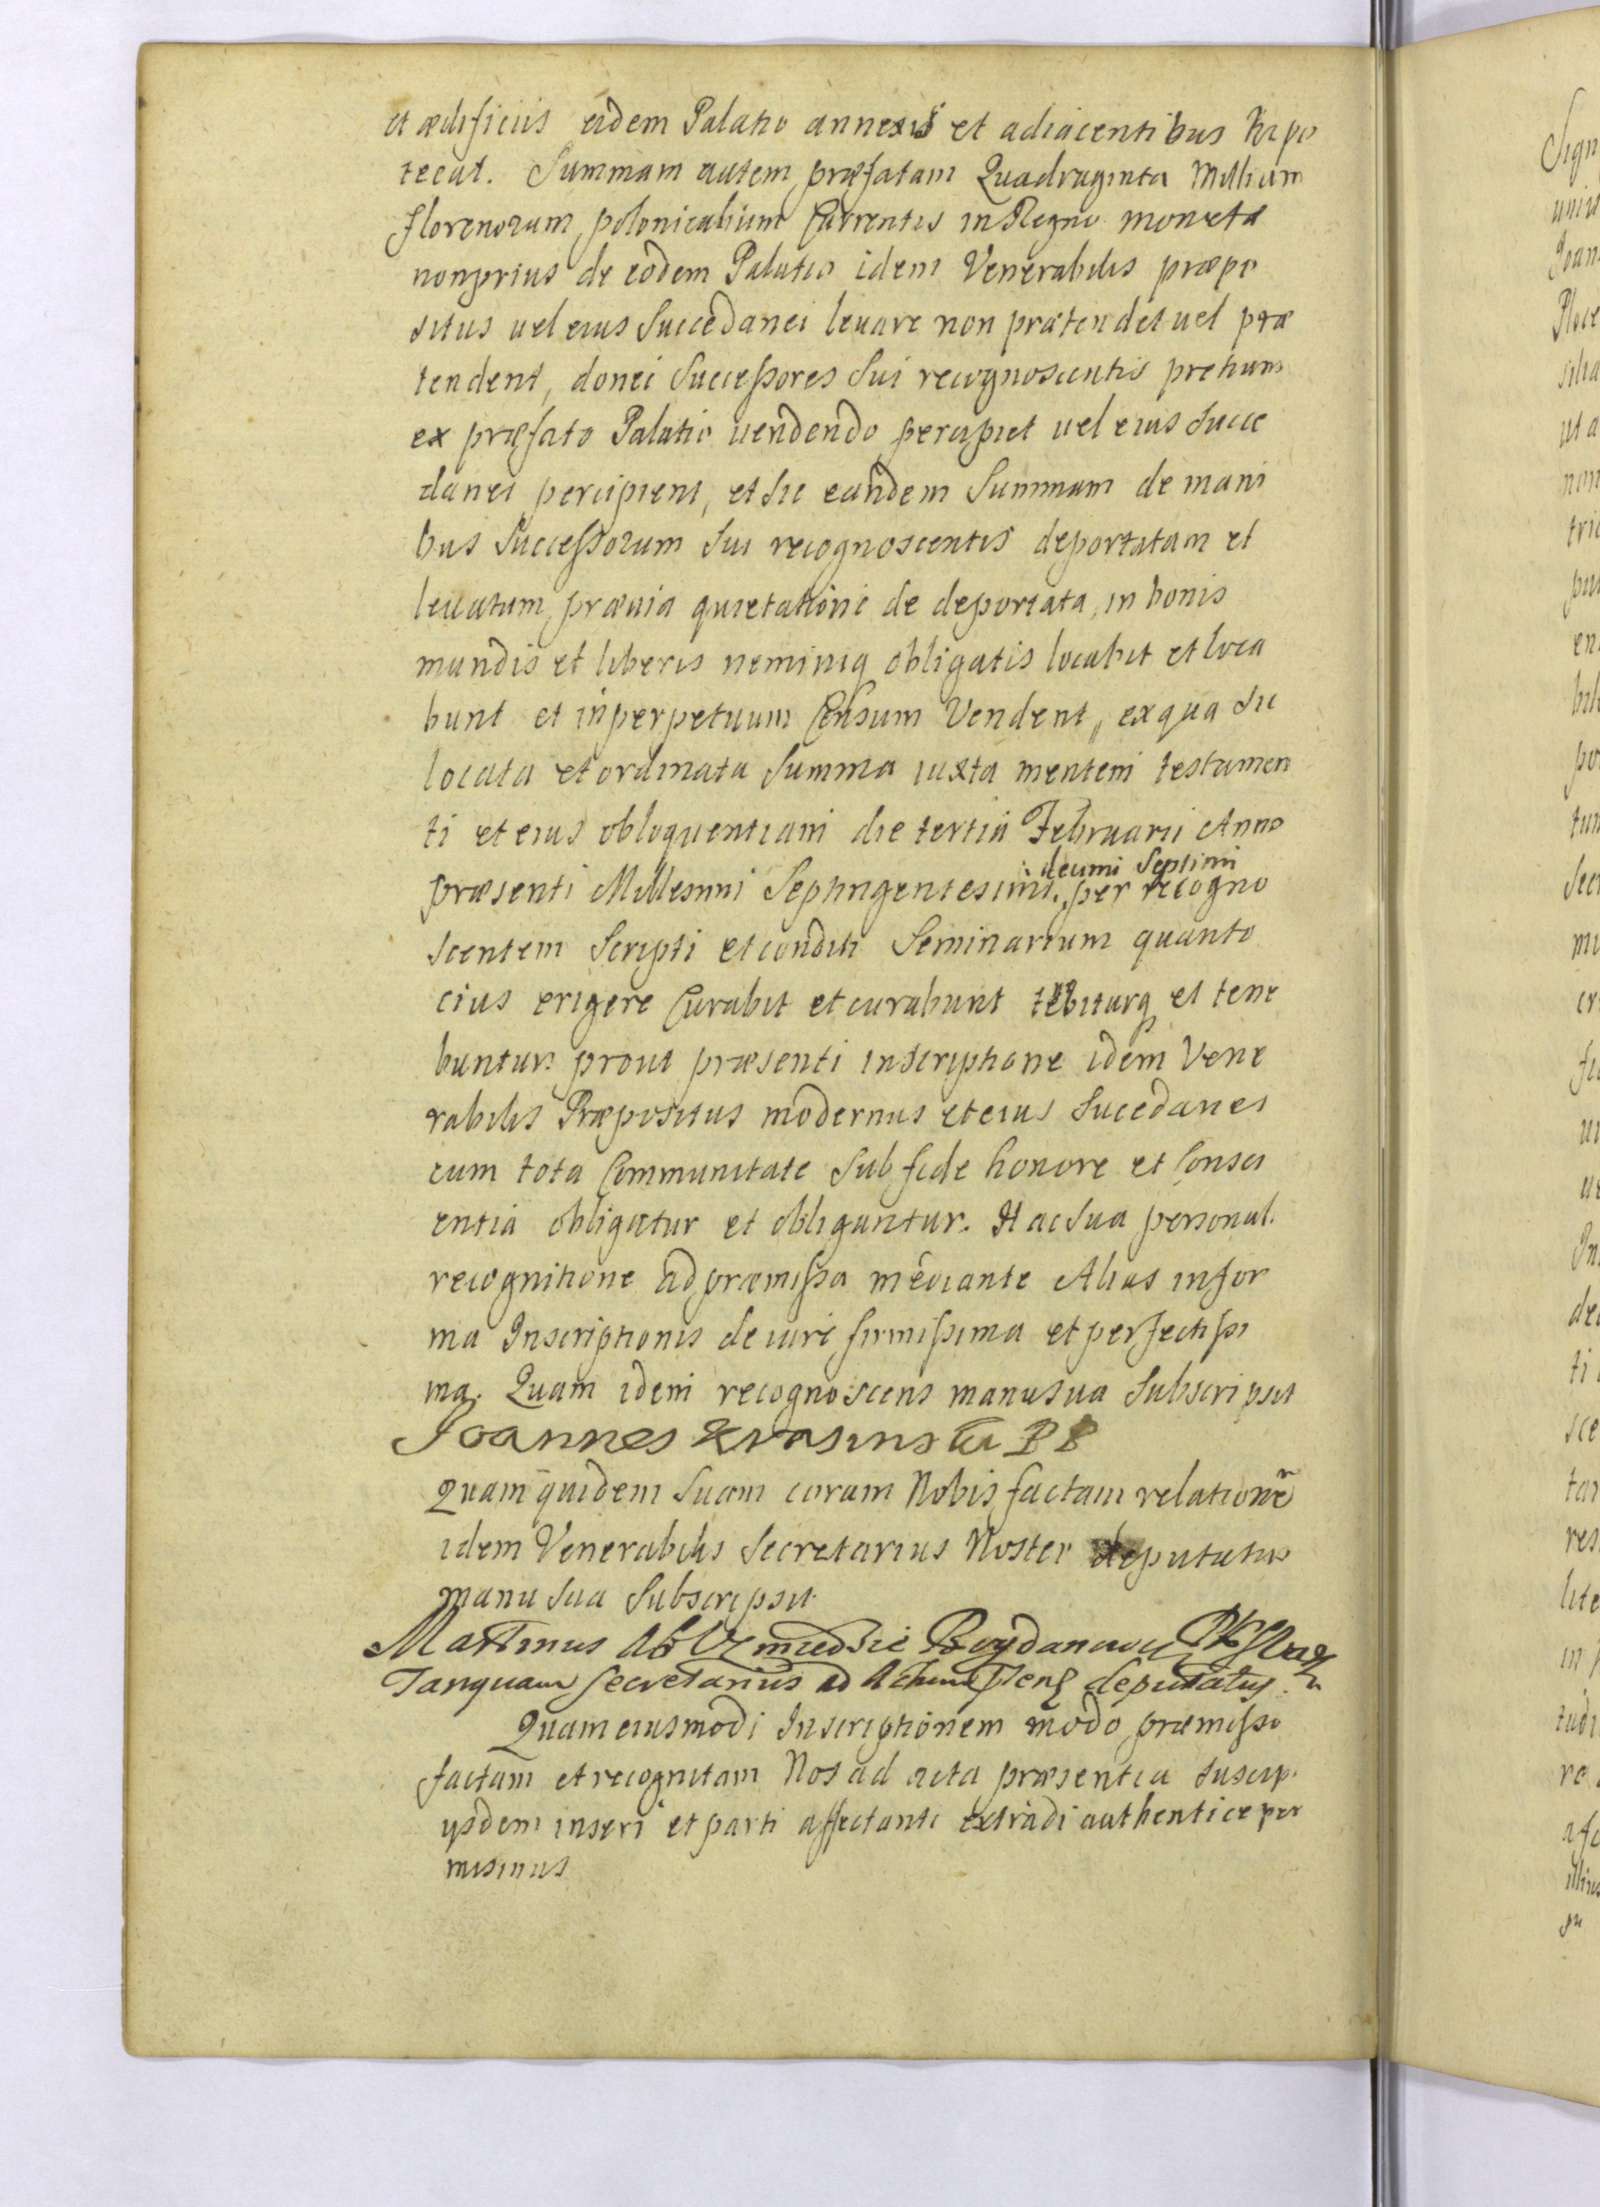 et ædificiis eidem Palatio annexis et adiacentibus hipo
tecat. Summam autem præfatam Quadraginta Millium
florenorum polonicalium Currentis in Regno moneta
nonprius de eodem Palatio idem Venerabilis præpo
situs vel eius Succedanei levare non prætendet vel præ
tendent, donec Successores Sui recognoscentis pretium
ex præfato Palatio vendendo percipiet vel eius Succe
danei percipient, et sic eandem Summam de mani
bus Successorum Sui recognoscentis deportatam et
levatum prævia quietatione de deportata, in bonis
mundis et liberis neminiq obligatis locabit et loca
bunt et in perpetuum Censum Vendent, ex qua sic
locata et ordinata Summa iuxta mentem testamen
ti et eius obloquentiam die tertia Februarii Anno
decimi Septimi
præsenti Millesimi Septingentesimi per recogno
scentem Scripti et conditi Seminarium quanto
cius erigere Curabit et curabunt tebiturq et tene
buntur prout præsenti inscriptione idem Vene
rabilis Præpositus modernus et eius Sucedanei
cum tota Communitate Sub fide honore et Consci
entia obligatur et obligantur. Hac sua personal.
recognitione ad præmissa mediante Alias in for
ma Inscriptionis de iure firmissima et perfectissi
ma. Quam idem recognoscens manu sua Subscripsit
Joannes Krasinski PP
Quam quidem Suam coram Nobis factam relatione
idem Venerabilis Secretarius Noster deputatus
manu sua Subscripsit.
Martinus Ab Bogdanowicz
Tanquam Secretarius ad deputatus
Quam eiusmodi Inscriptionem modo præmisso
factam et recognitam Nos ad acta præsentia suscip.
ysdem inseri et parti affectanti extradi authentice per
misimus

Sign